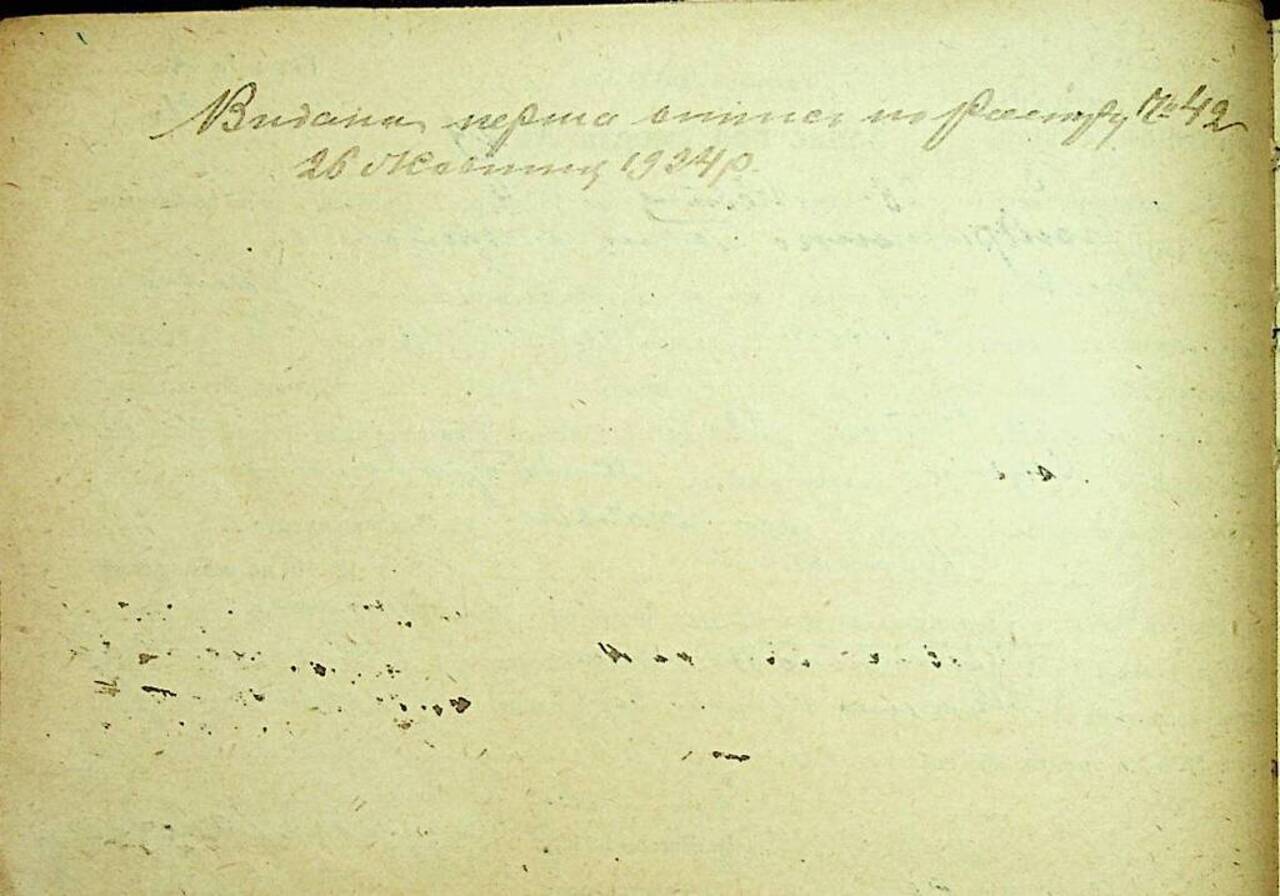 Видана перша випись по реєстру № 42
26 Жовтня 1924 р.